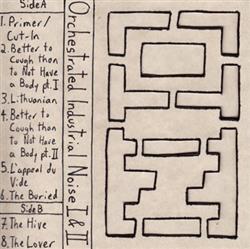 Side A
1. Primer/
Cut-In
2. Better to
Cough than
to Not Have
a Body pt. I
3. Lithuanian
4. Better to
Cough than
to Not Have
a Body pt. II
5. L'appel du
Vide
6. The Buried
Side B
7. The Hive
8. The Lover
Orchestrated Industrial Noise I & II